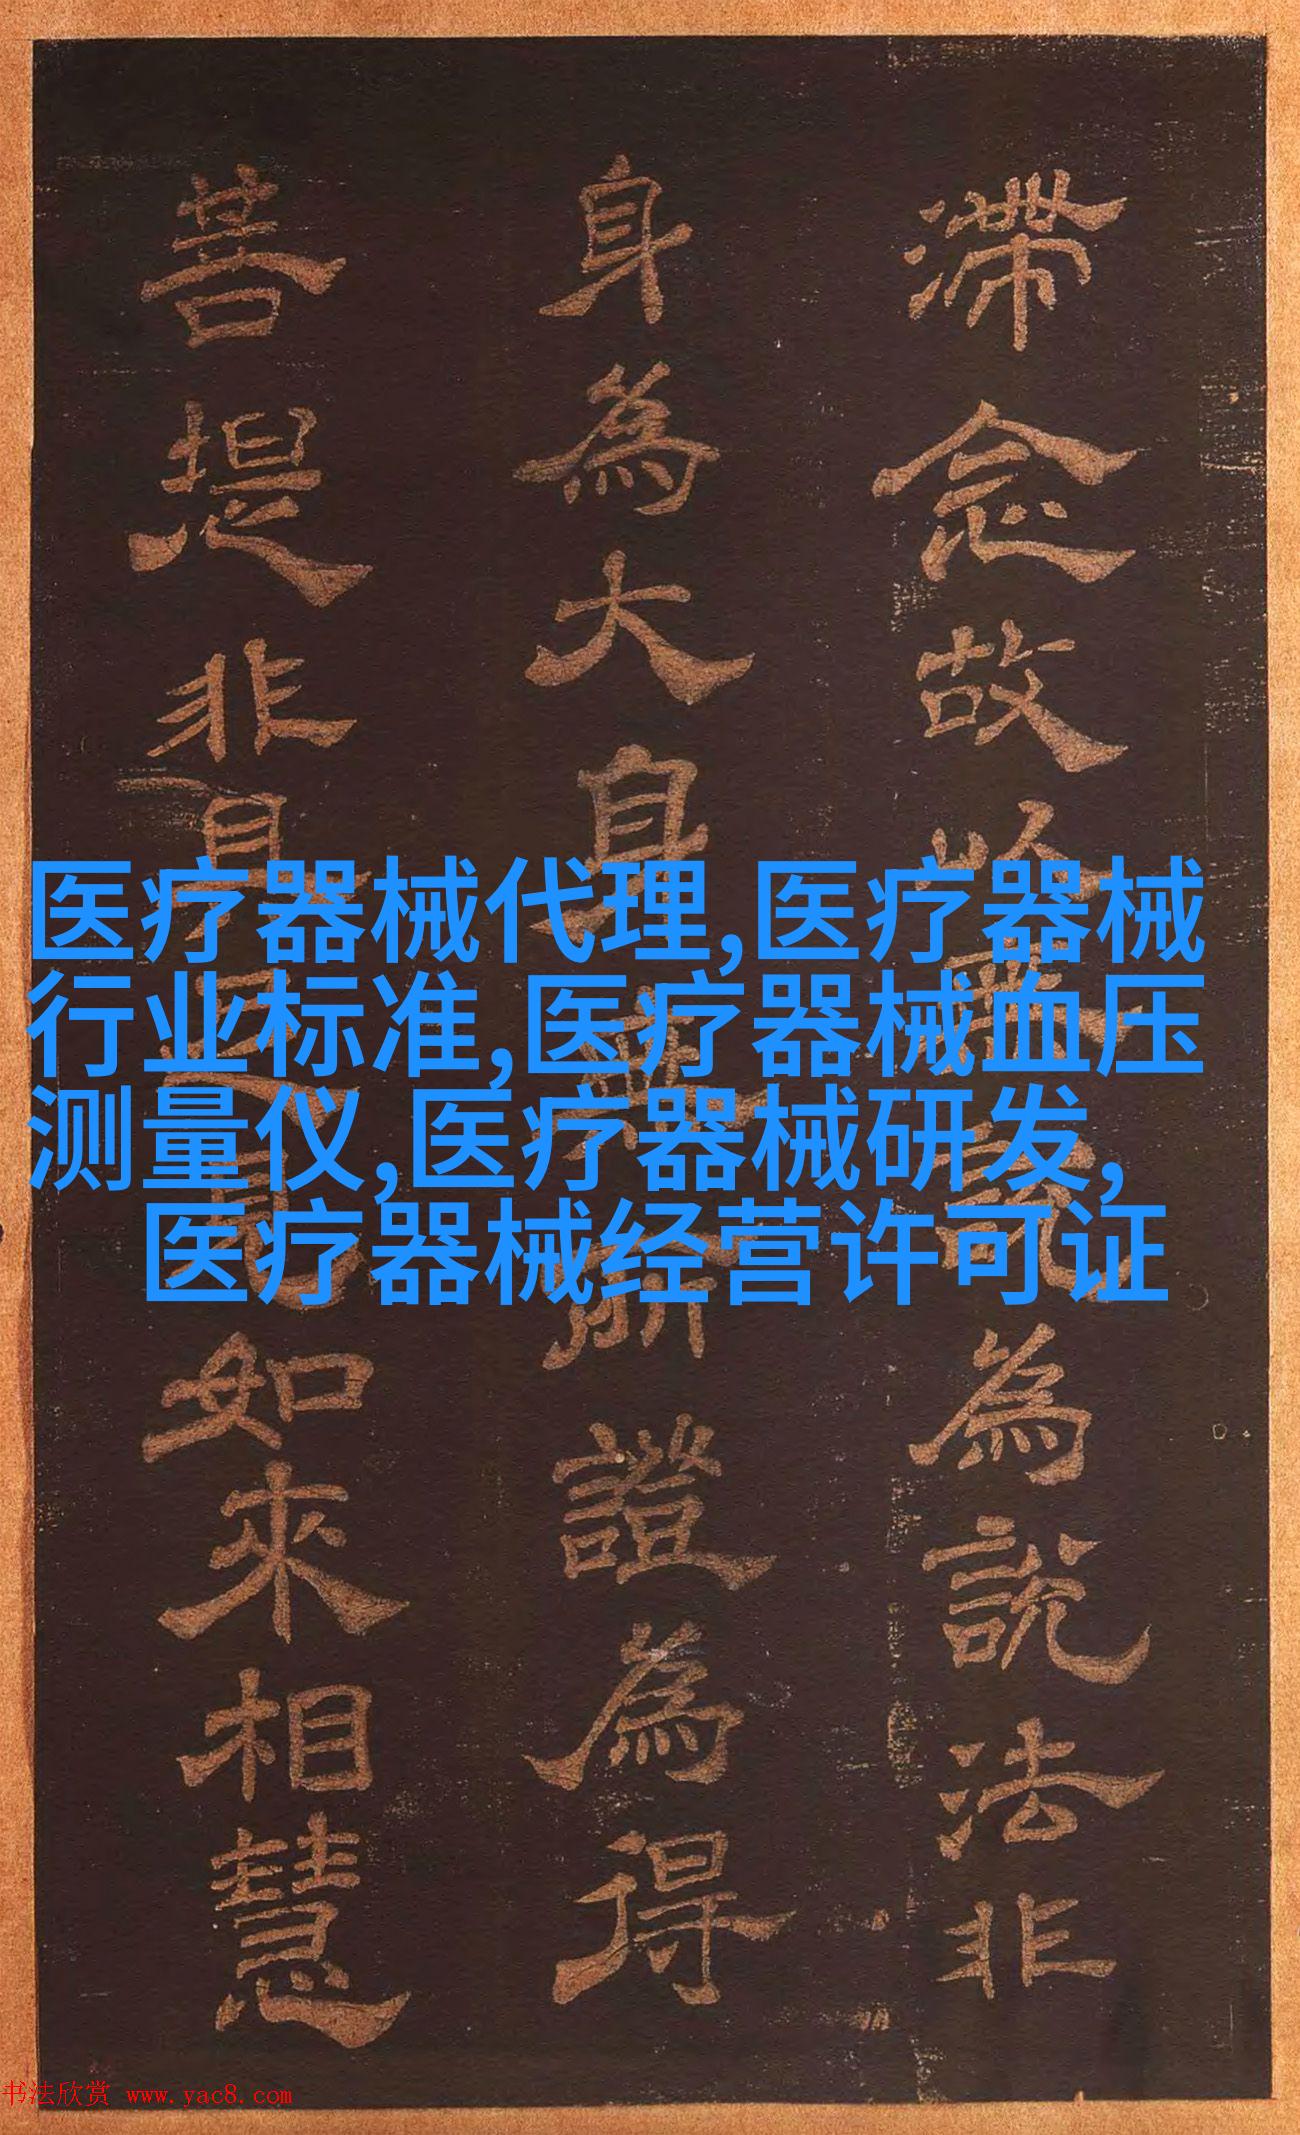 滯念故以無說為說法非
身為大身無所證為得
菩提非具足見如來相慧
医疗器械代理,医疗器械
行业标准,医疗器械血压
测量仪,医疗器械研发,
医疗器械经营许可证
书法欣赏 www.yac8.com